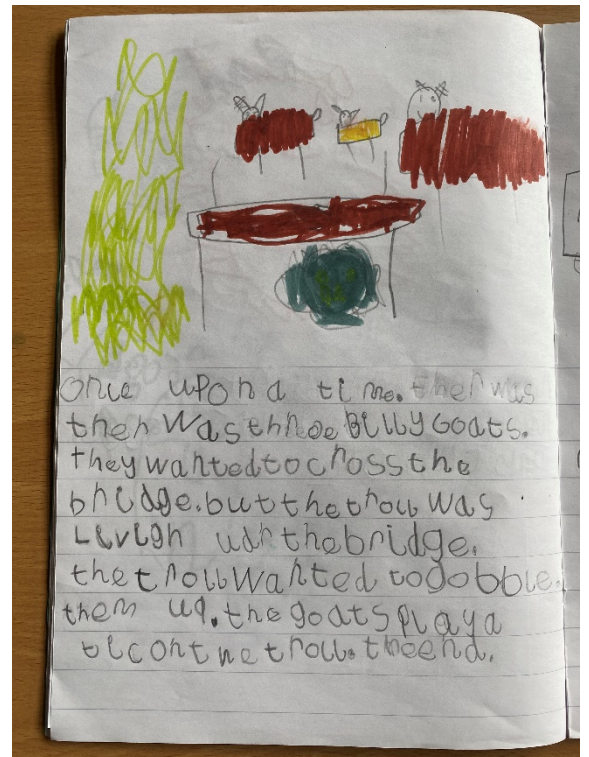 Once upon a time. ther was
ther was three Billy Goats.
they wanted to cross the
bridge. but the troll was
Livigh udr the bridge.
the troll wanted to gobble.
them up. the goats play a
tic on t he troll. the end.